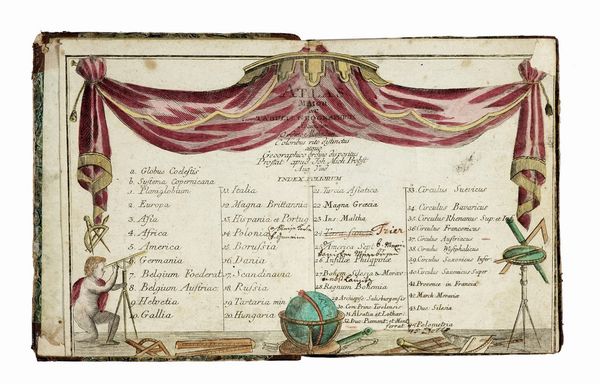 ATLAS
MINOR
Coloribus rite distinctus
atque
Geographico ordine dispositus
Prostat apud Joh. Mich. Probst
Aug. Vind.
INDEX TABULARUM
a. Globus Coelestis
b. Systema Copernicana
1. Planiglobium
2. Europa
3. Asia
4. Africa
5. America
6. Germania
7. Belgium Foederat.
8. Belgium Austriac.
9. Helvetia
10. Gallia
11. Italia
12. Magna Britannia
13. Hispania et Portug
14. Polonia
15. Borussia
16. Dania
17. Scandinavia
18. Russia
19. Tartaria min
20. Hungaria
21. Turcia Asiatica
22. Magna Graecia
23. Ins. Maltha
24. Terra Sancta Trier
25. America Sept
26. Insulae Philippin
27. Bohem Silesia & Morav
28. Regnum Bohemia
29. Archiepis Salisburgensis
30. Com Princ Tirolensis
31. Alsatia et Lothar.
32. Duc. Piemont. et Mont
ferrat.
33. Circulus Suevicus
34. Circulus Bavaricus
35. Circulus Rhenanus Sup. et Inf.
36. Circulus Franconicus
37. Circulus Austriacus
38. Circulus Westphalicus
39. Circulus Saxonicus Infer
40. Circulus Saxonicus Super
41. Provence in Francia
42. March Moravia
43. Duc. Silesia
44. Polometria